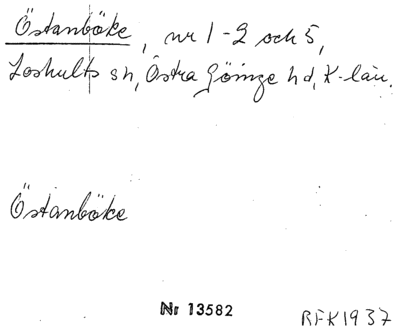 Östanböke, nr 1-2 och 5,
Loshults sn, Östra Göinge hd, K-län.
Östanböke
Nr 13582
RFK1937